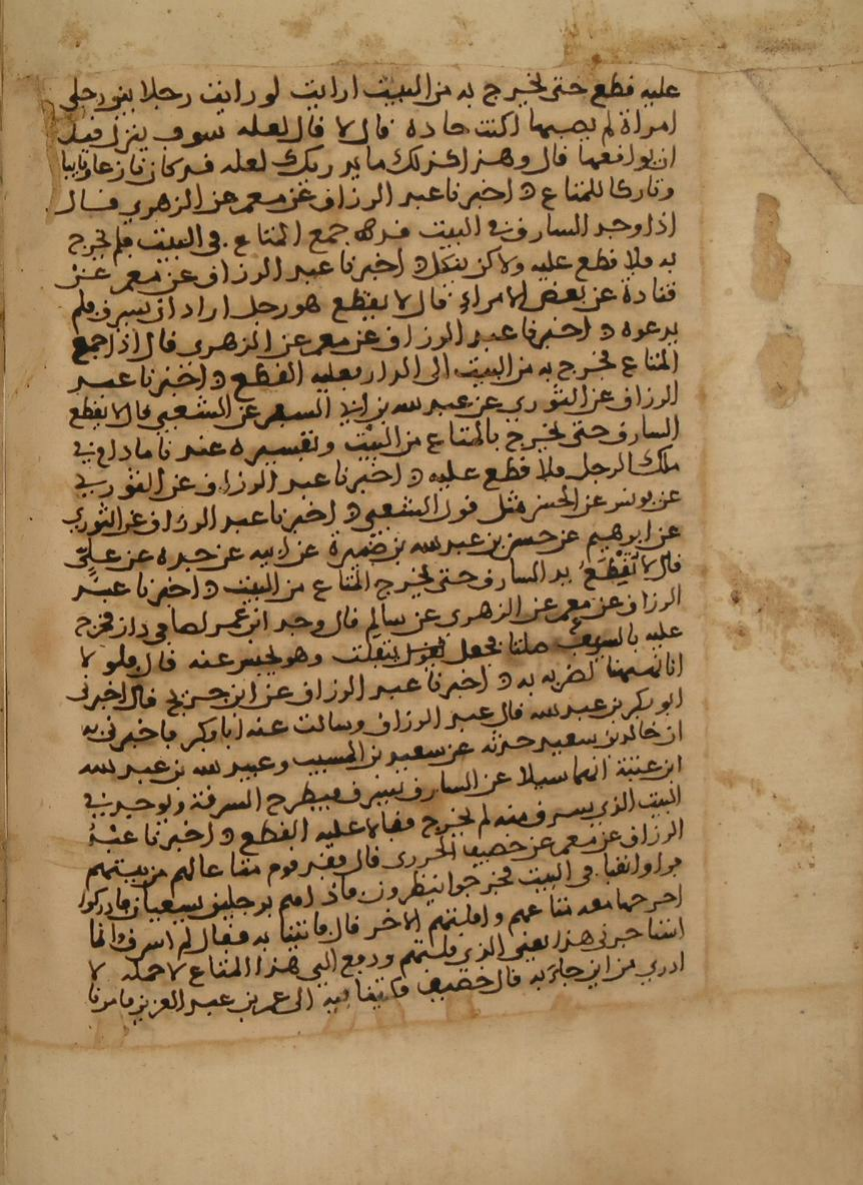 عليه قطع حتى يخرج به من البيت ارايت لو رايت رجلا بين رجلي
امراة لم يصبها اكنت حاده قال لا قال لعله سوف ينزل قبل
ان يواقعها قال وهذا كذلك ما يدريك لعله قد كان نازعا وتايبا
وتاركا للمتاع اخبرنا عبد الرزاق عن معمر عن الزهري قال
اذا وجد السارق في البيت قد جمع المتاع في البيت فلم يخرج
به فلا قطع عليه ولاكن ينكل اخبرنا عبد الرزاق عن معمر عن
قتادة عن بعض الامراء قال لا يقطع هو رجل اراد ان يسرق فلم
يدعوه اخبرنا عبد الرزاق عن معمر عن الزهري قال اذا جمع
المتاع فخرج به من البيت الى الدار فعليه القطع اخبرنا عبد
الرزاق عن الثوري عن عبد الله بن ابي السفر عن الشعبي قال لا يقطع
السارق حتى يخرج بالمتاع من البيت وتفسيره عندنا ما دام في
ملك الرجل فلا قطع عليه اخبرنا عبد الرزاق عن الثوري
عن يونس عن الحسن مثل قول الشعبي اخبرنا عبد الرزاق عن الثوري
عن ابرهيم عن حسين بن عبد الله بن ضميرة عن ابيه عن جده عن علي
قال لا تقطع يد السارق حتى يخرج المتاع من البيت اخبرنا عبد
الرزاق عن معمر عن الزهري عن سالم قال وجد ابن عمر لصا في داره فخرج
عليه بالسيف صلتا فجعل يتفلت وهو يحبس عنه قال فلو لا
انا نهيناه لضربه به اخبرنا عبد الرزاق عن ابن جريج قال اخبرني
ابو بكر بن عبد الله قال عبد الرزاق وسالت عنه ابا بكر فاخبرني به
ان خالد بن سعيد حدثه عن سعيد بن المسيب وعبيد الله بن عبد الله
ابن عتبة انهما سيلا عن السارق يسرق فيطرح السرقة ويوجد في
البيت الذي يسرق منه لم يخرج فقالا عليه القطع اخبرنا عبد
الرزاق عن معمر عن خصيف الجزري قال فقد قوم متاعا لهم من بيتهم
فراوا نقبا في البيت فخرجوا ينظرون فاذا هم برجلين يسعيان فادركوا
احدهما معه متاعهم وافلتهم الاخر قال فاتينا به فقال لم اسرق وانما
استاجرني هذا يعني الذي فلتهم ودفع الي هذا المتاع لاحمله لا
ادري من اين جاء به قال خصيف فكتبنا فيه الى عمر بن عبد العزيز فامرنا